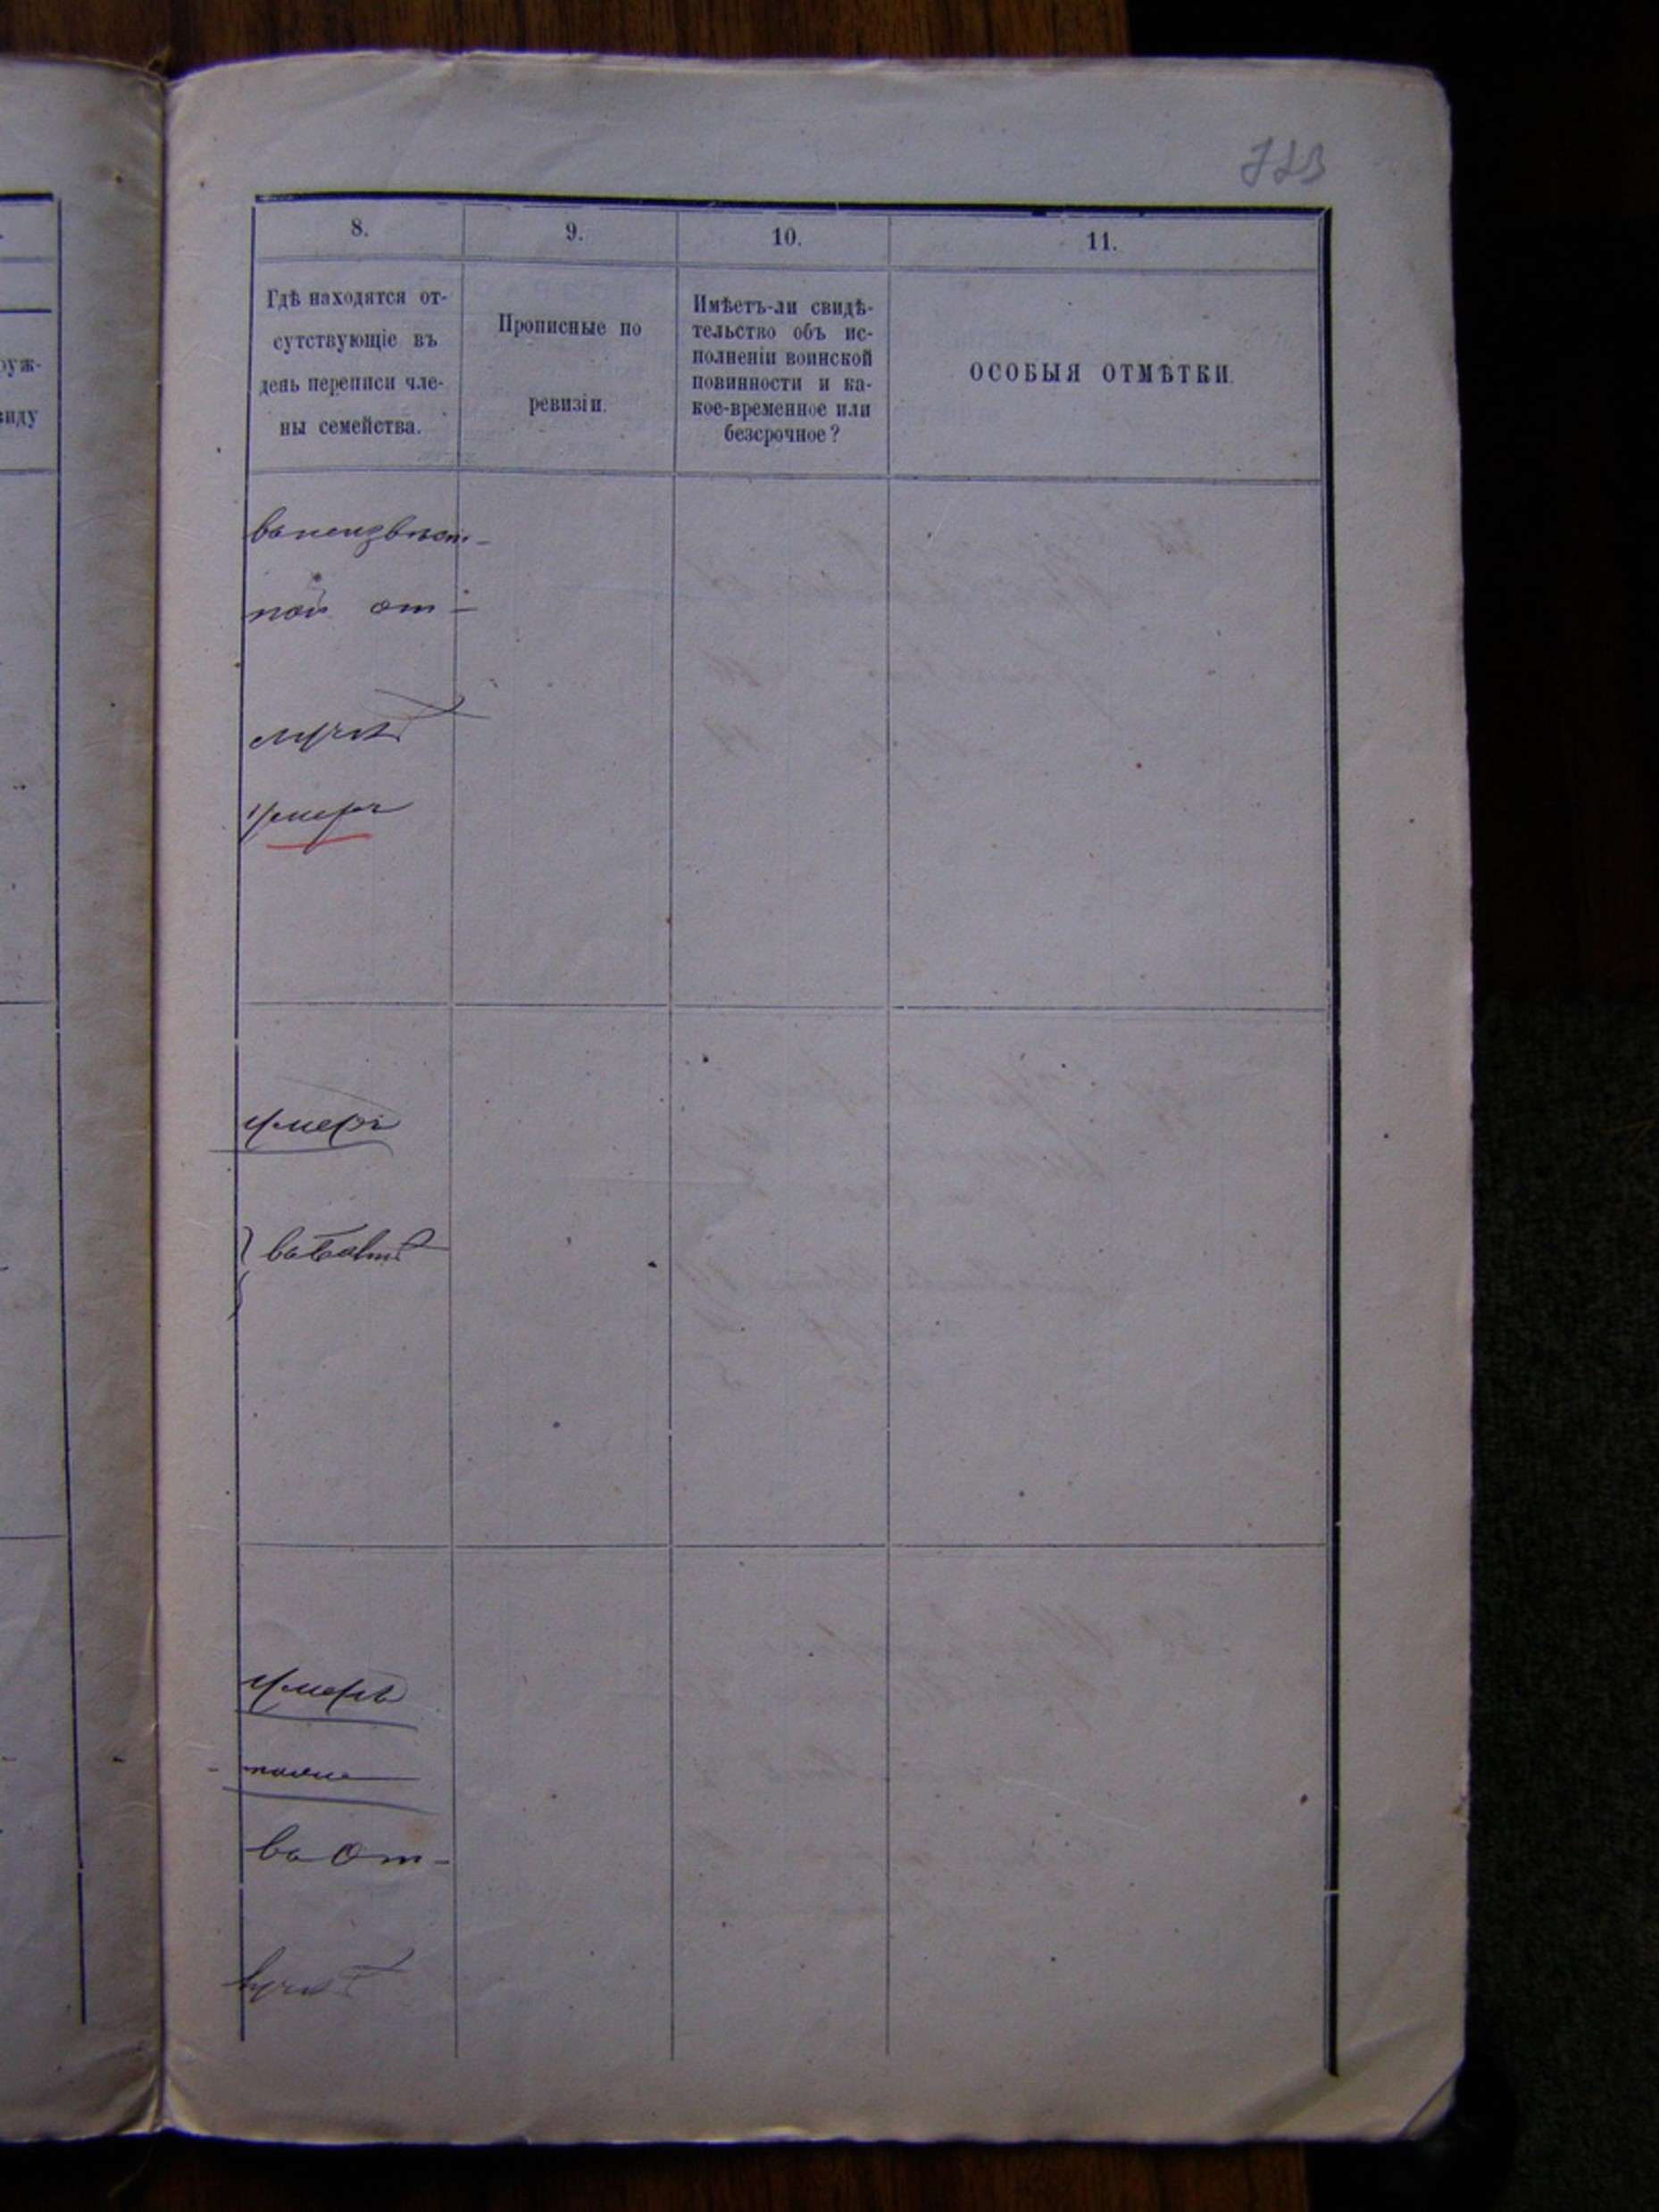 8.
9.
10.
11.
Гдѣ находятся от-
сутствующіе въ
день переписи чле-
ны семейства.
Прописные по
ревизіи.
Имѣетъ-ли свидѣ-
тельство объ ис-
полненіи воинской
повинности и ка-
кое-временное или
безсрочное?
ОСОБЫЯ ОТМѢТКИ.
руж-
виду
ва неизвѣст-
ной от-
умеръ
умеръ
умеръ
тоже
ва От-